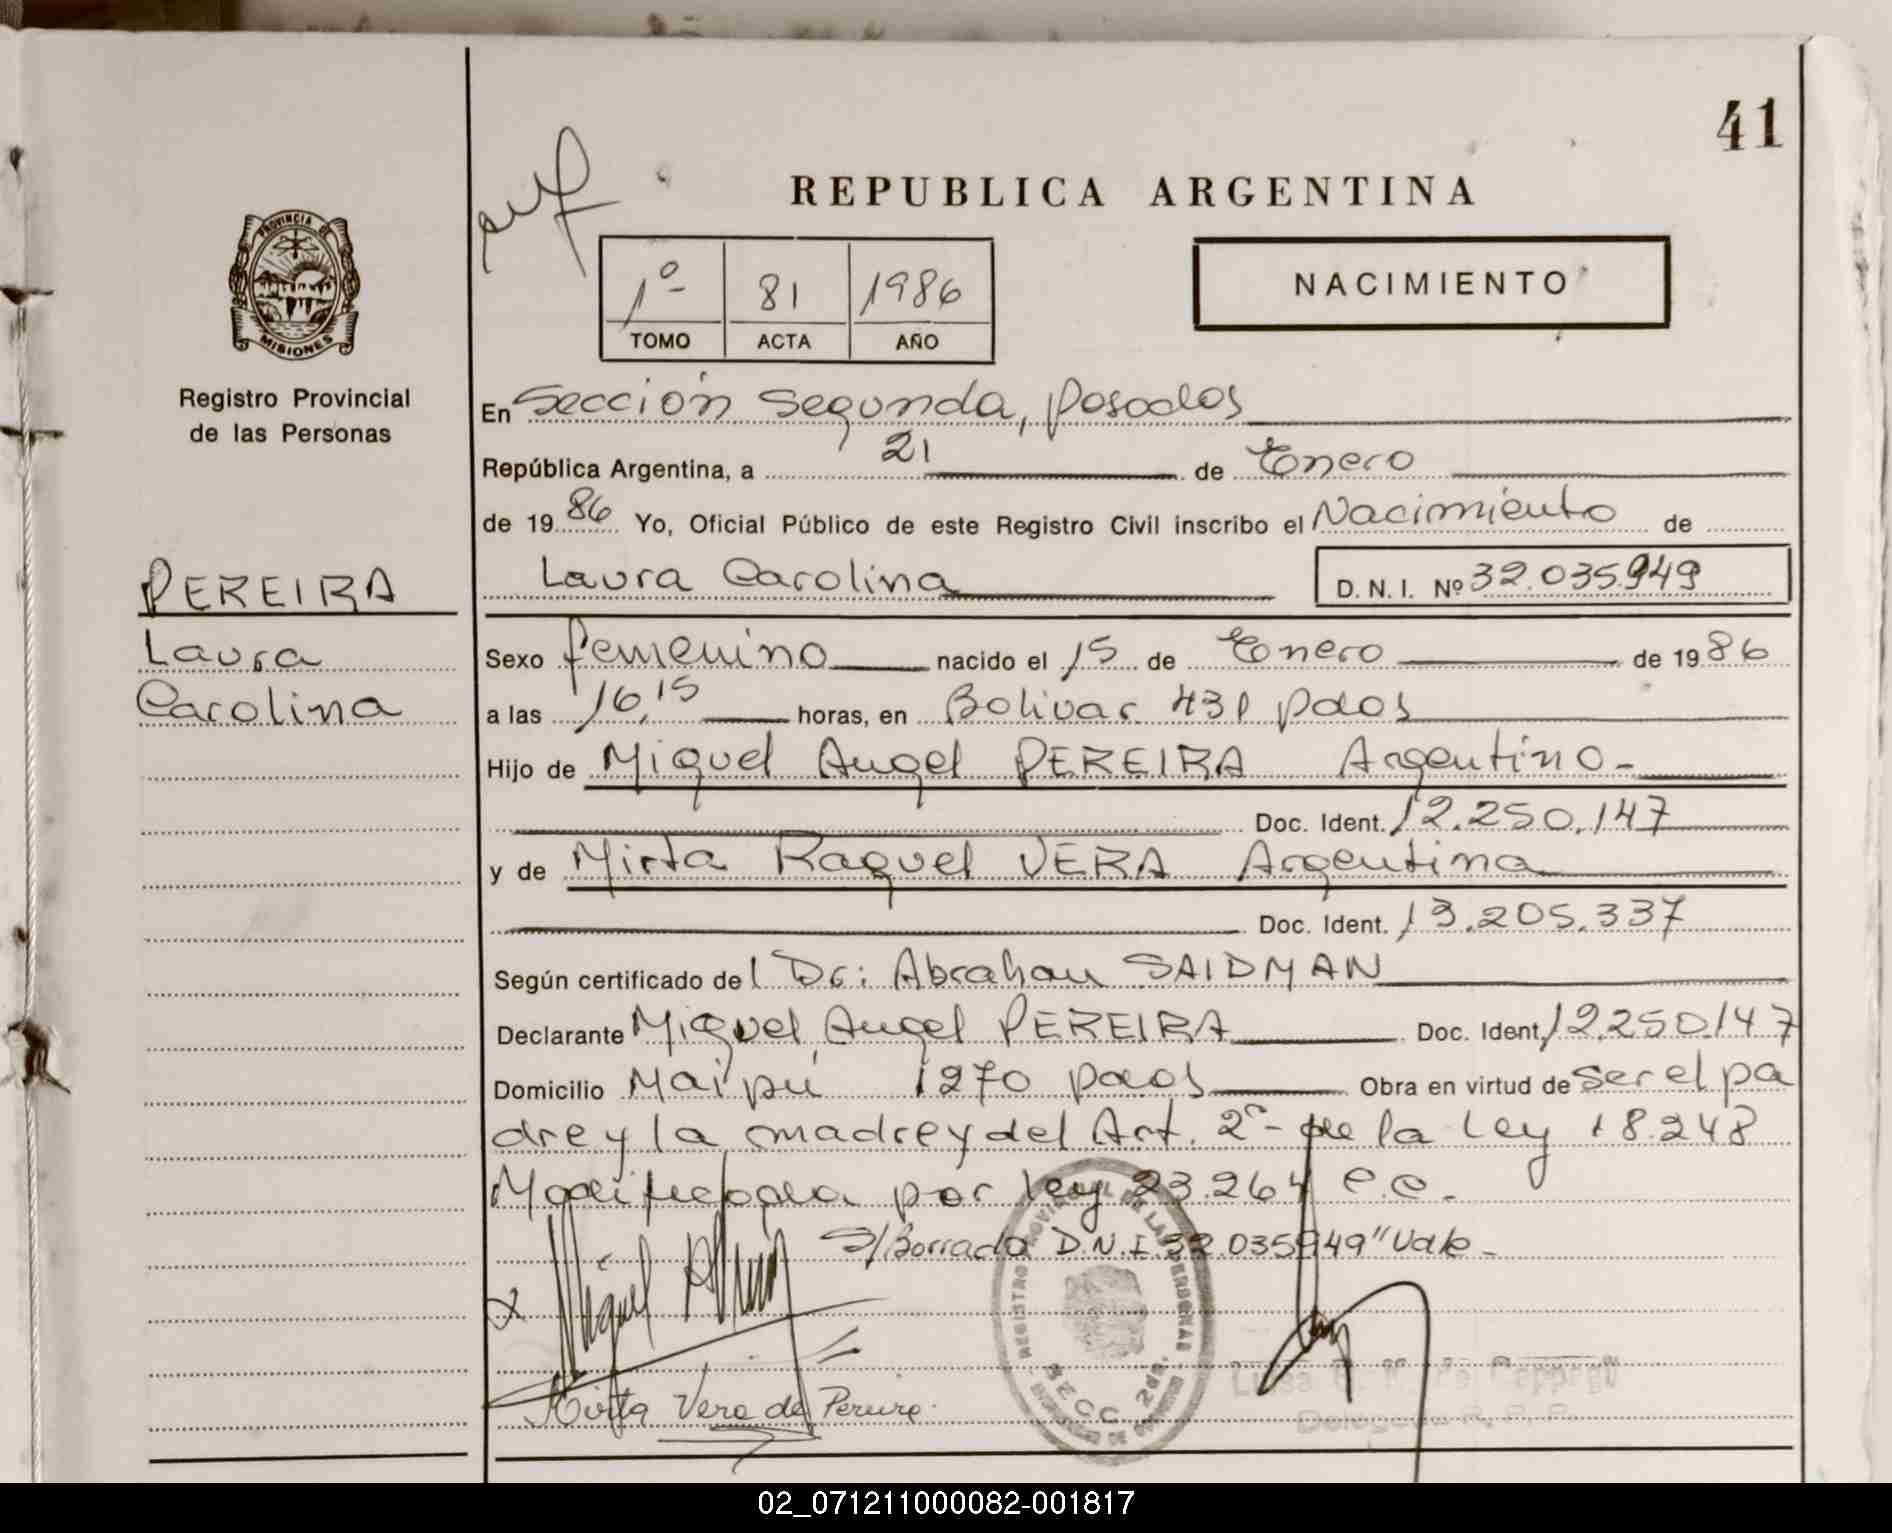 41
REPUBLICA ARGENTINA
PROVINCIA DE
MISIONES
1º 81 1986
TOMO ACTA AÑO
NACIMIENTO
Registro Provincial
de las Personas
En Sección Segunda, Posadas
República Argentina, a 21 de Enero
de 1986 Yo, Oficial Público de este Registro Civil inscribo el Nacimiento de
Laura Carolina D. N. I. Nº 32.035.949
PEREIRA
Laura
Carolina
Sexo femenino nacido el 15 de Enero de 1986
a las 16,15 horas, en Bolivar 431 Pdas
Hijo de Miguel Angel PEREIRA Argentino-
Doc. Ident. 12.250.147
y de Mirta Raquel VERA Argentina
Doc. Ident. 13.205.337
Según certificado del Dr: Abraham SAIDMAN
Declarante Miguel Angel PEREIRA Doc. Ident. 12.250.147
Domicilio Maipú 1270 Pdas Obra en virtud de ser el pa
dre y la madre y del Art. 2º- de la Ley 18.248
Modificada por ley 23.264
S/Borrado D.N.I 32.035949" Vale-
Miguel
Mirta Vera de Pereira
REGISTRO PROVINCIAL DE LAS PERSONAS
SECC 2da.
Delegada R. P. P.
02_071211000082-001817